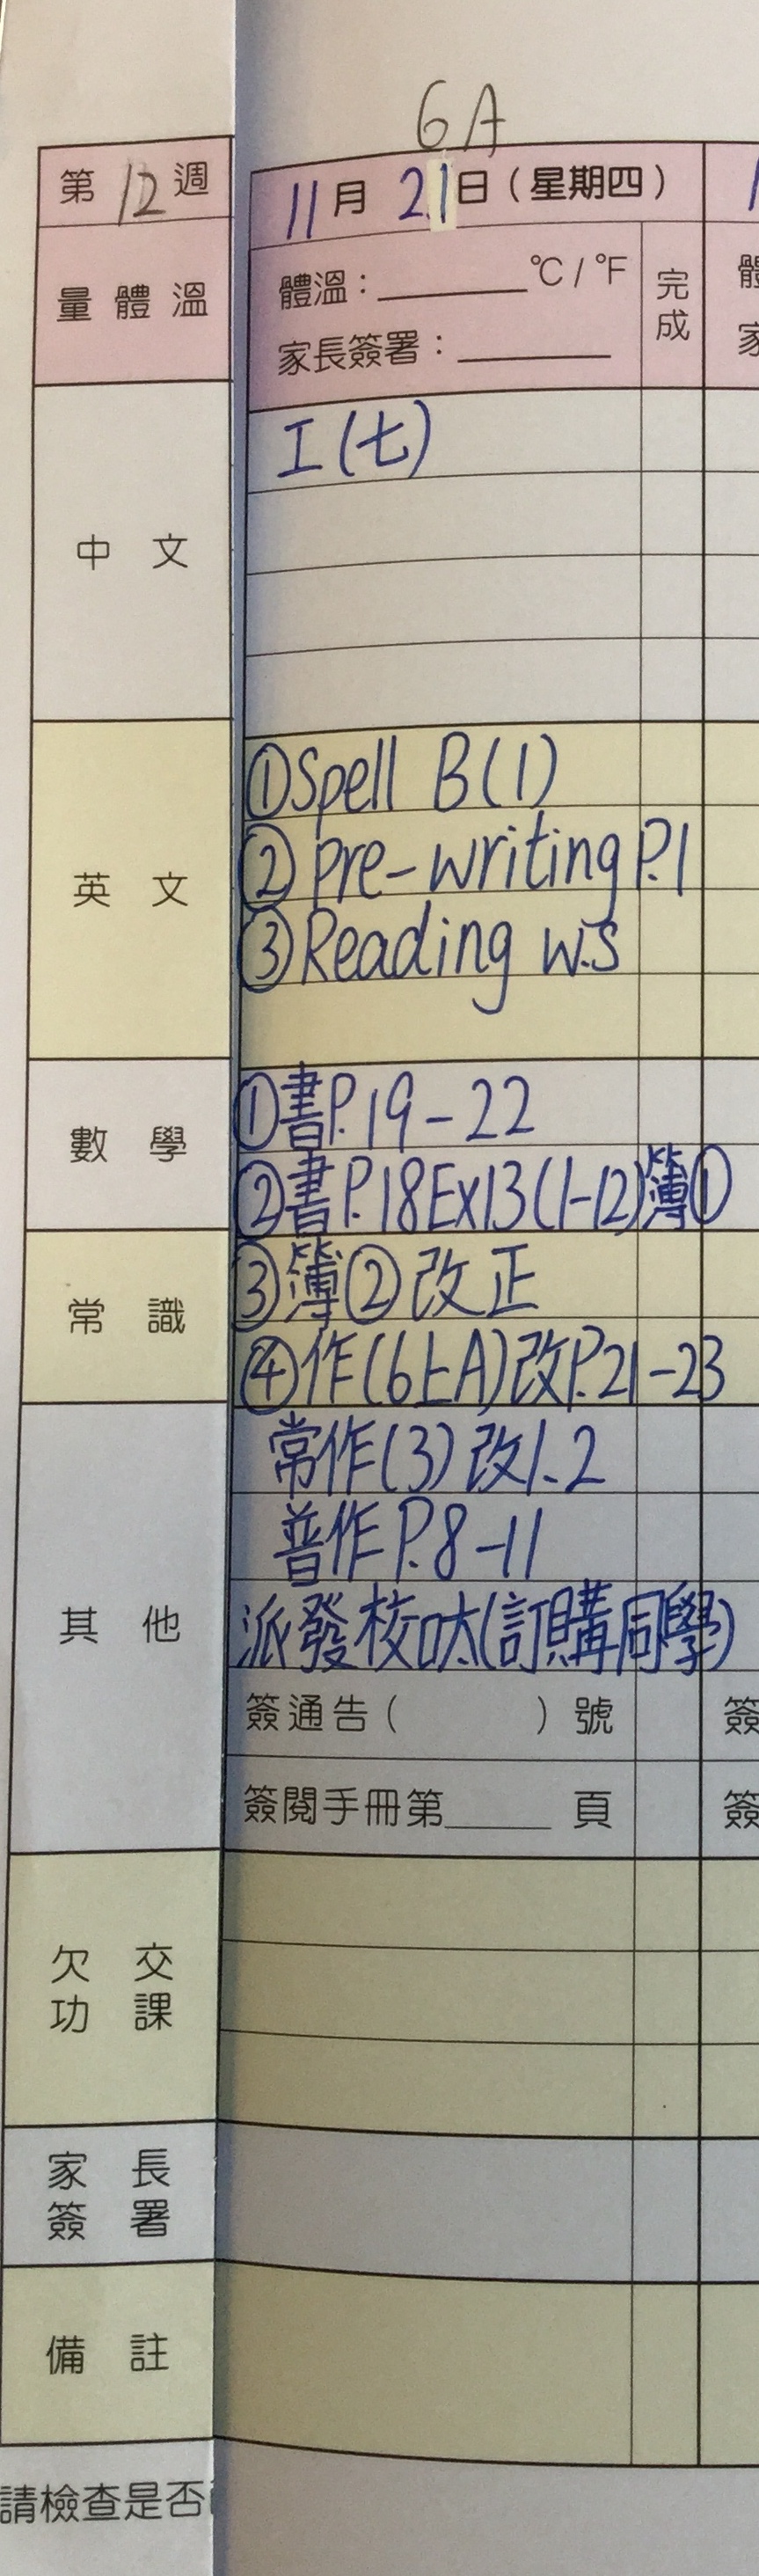 6A
第12週
11月21日(星期四)
量體溫
體溫：______℃/℉
完成
家長簽署：______
中文
工(七)
英文
①Spell B(1)
②Pre-writing P.1
③Reading W.S
數學
①書P.19-22
②書P.18Ex13(1-12)簿①
常識
③簿②改正
④作(6上A)改P.21-23
其他
常作(3)改1.2
普作P.8-11
派發校呔(訂購同學)
簽通告(　　　)號
簽
簽閱手冊第____頁
簽
欠交功課
家長簽署
備註
請檢查是否